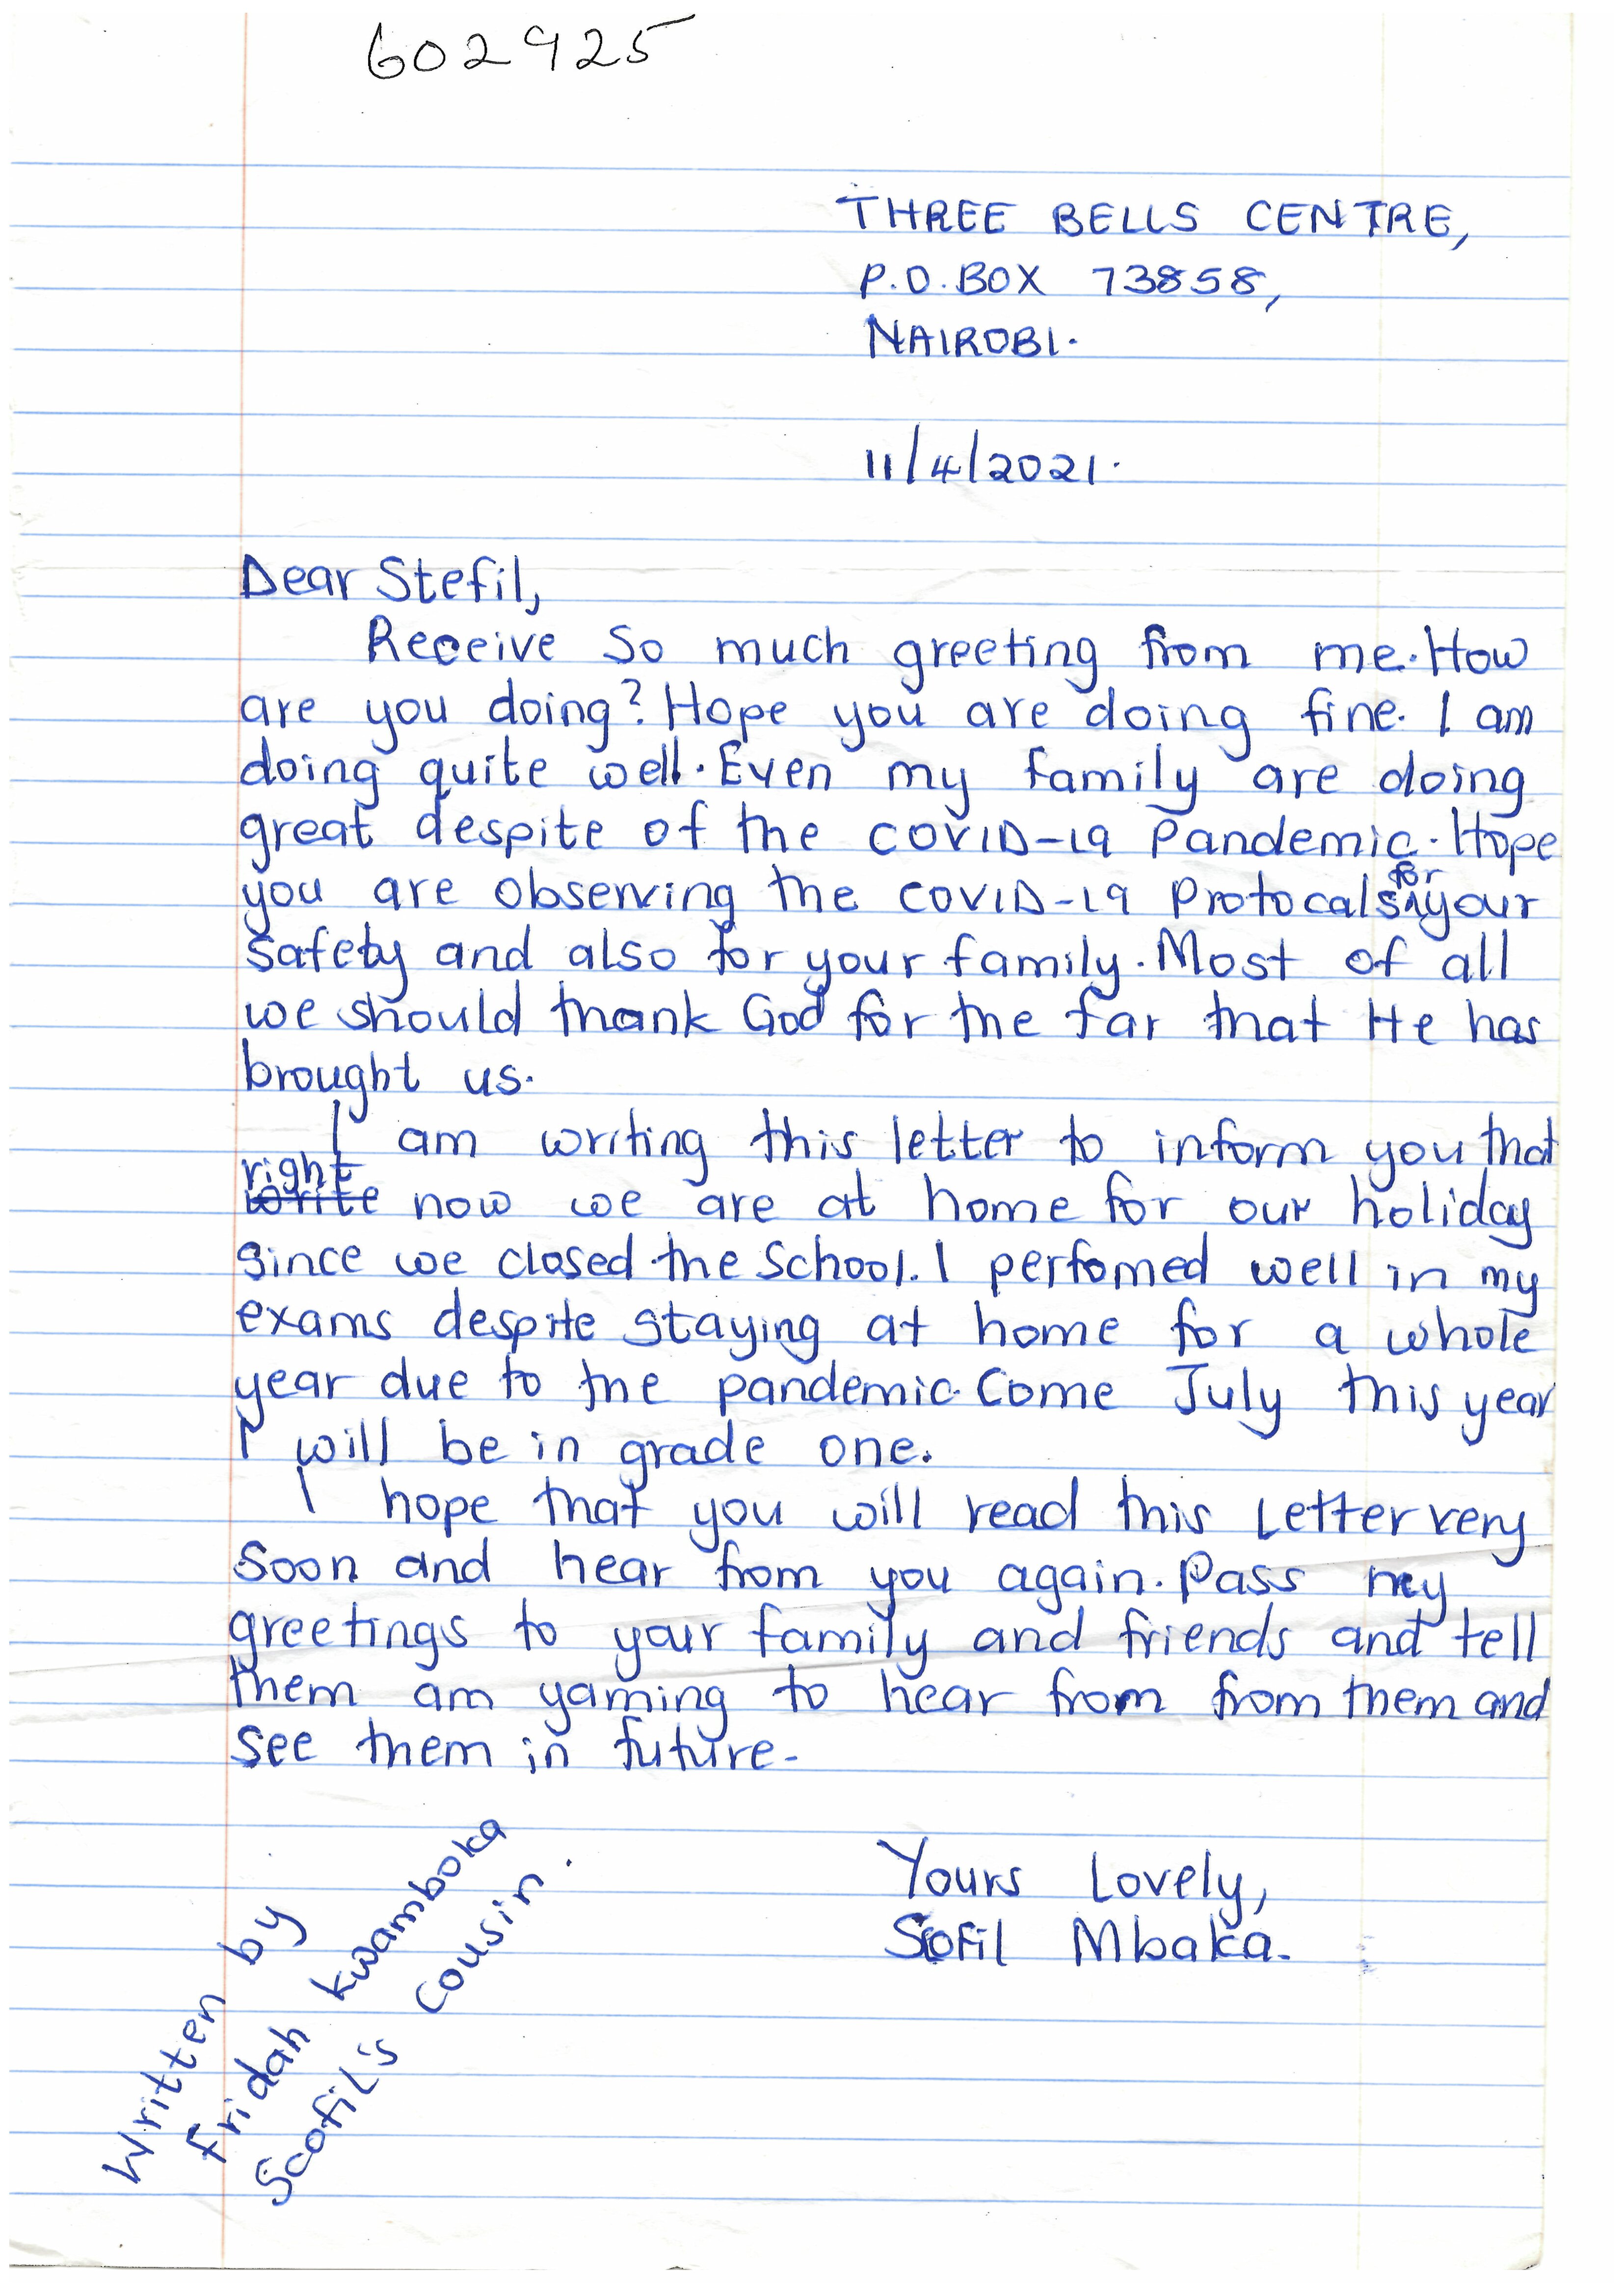 602925
THREE BELLS CENTRE,
P.O.BOX 73858,
NAIROBI.
11/4/2021.
Dear Stefil,
Receive so much greeting from me. How
are you doing? Hope you are doing fine. I am
doing quite well. Even my family are doing
great despite of the COVID-19 Pandemic. Hope
you are observing the COVID-19 Protocals for your
safety and also for your family. Most of all
we should thank God for the far that He has
brought us.
I am writing this letter to inform you that
right write now we are at home for our holiday
since we closed the school. I perfomed well in my
exams despite staying at home for a whole
year due to the pandemic. Come July this year
I will be in grade one.
I hope that you will read this Letter very
soon and hear from you again. Pass my
greetings to your family and friends and tell
them am yarning to hear from from them and
see them in future.
Yours Lovely,
Scofil Mbaka.
Written by
Fridah Kwamboka
Scofil's Cousin.